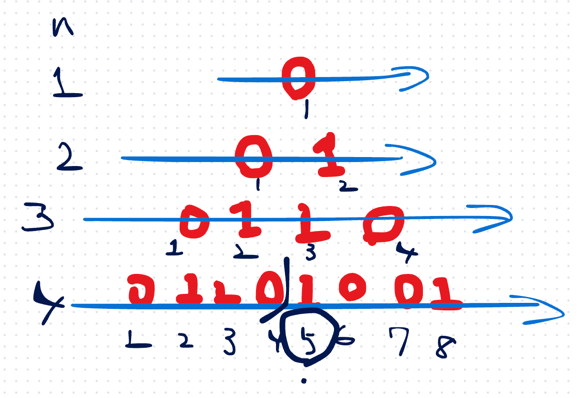 n
1 0
1
2 0 1
1 2
3 0 1 1 0
1 2 3 4
4 0 1 1 0 1 0 0 1
1 2 3 4 5 6 7 8